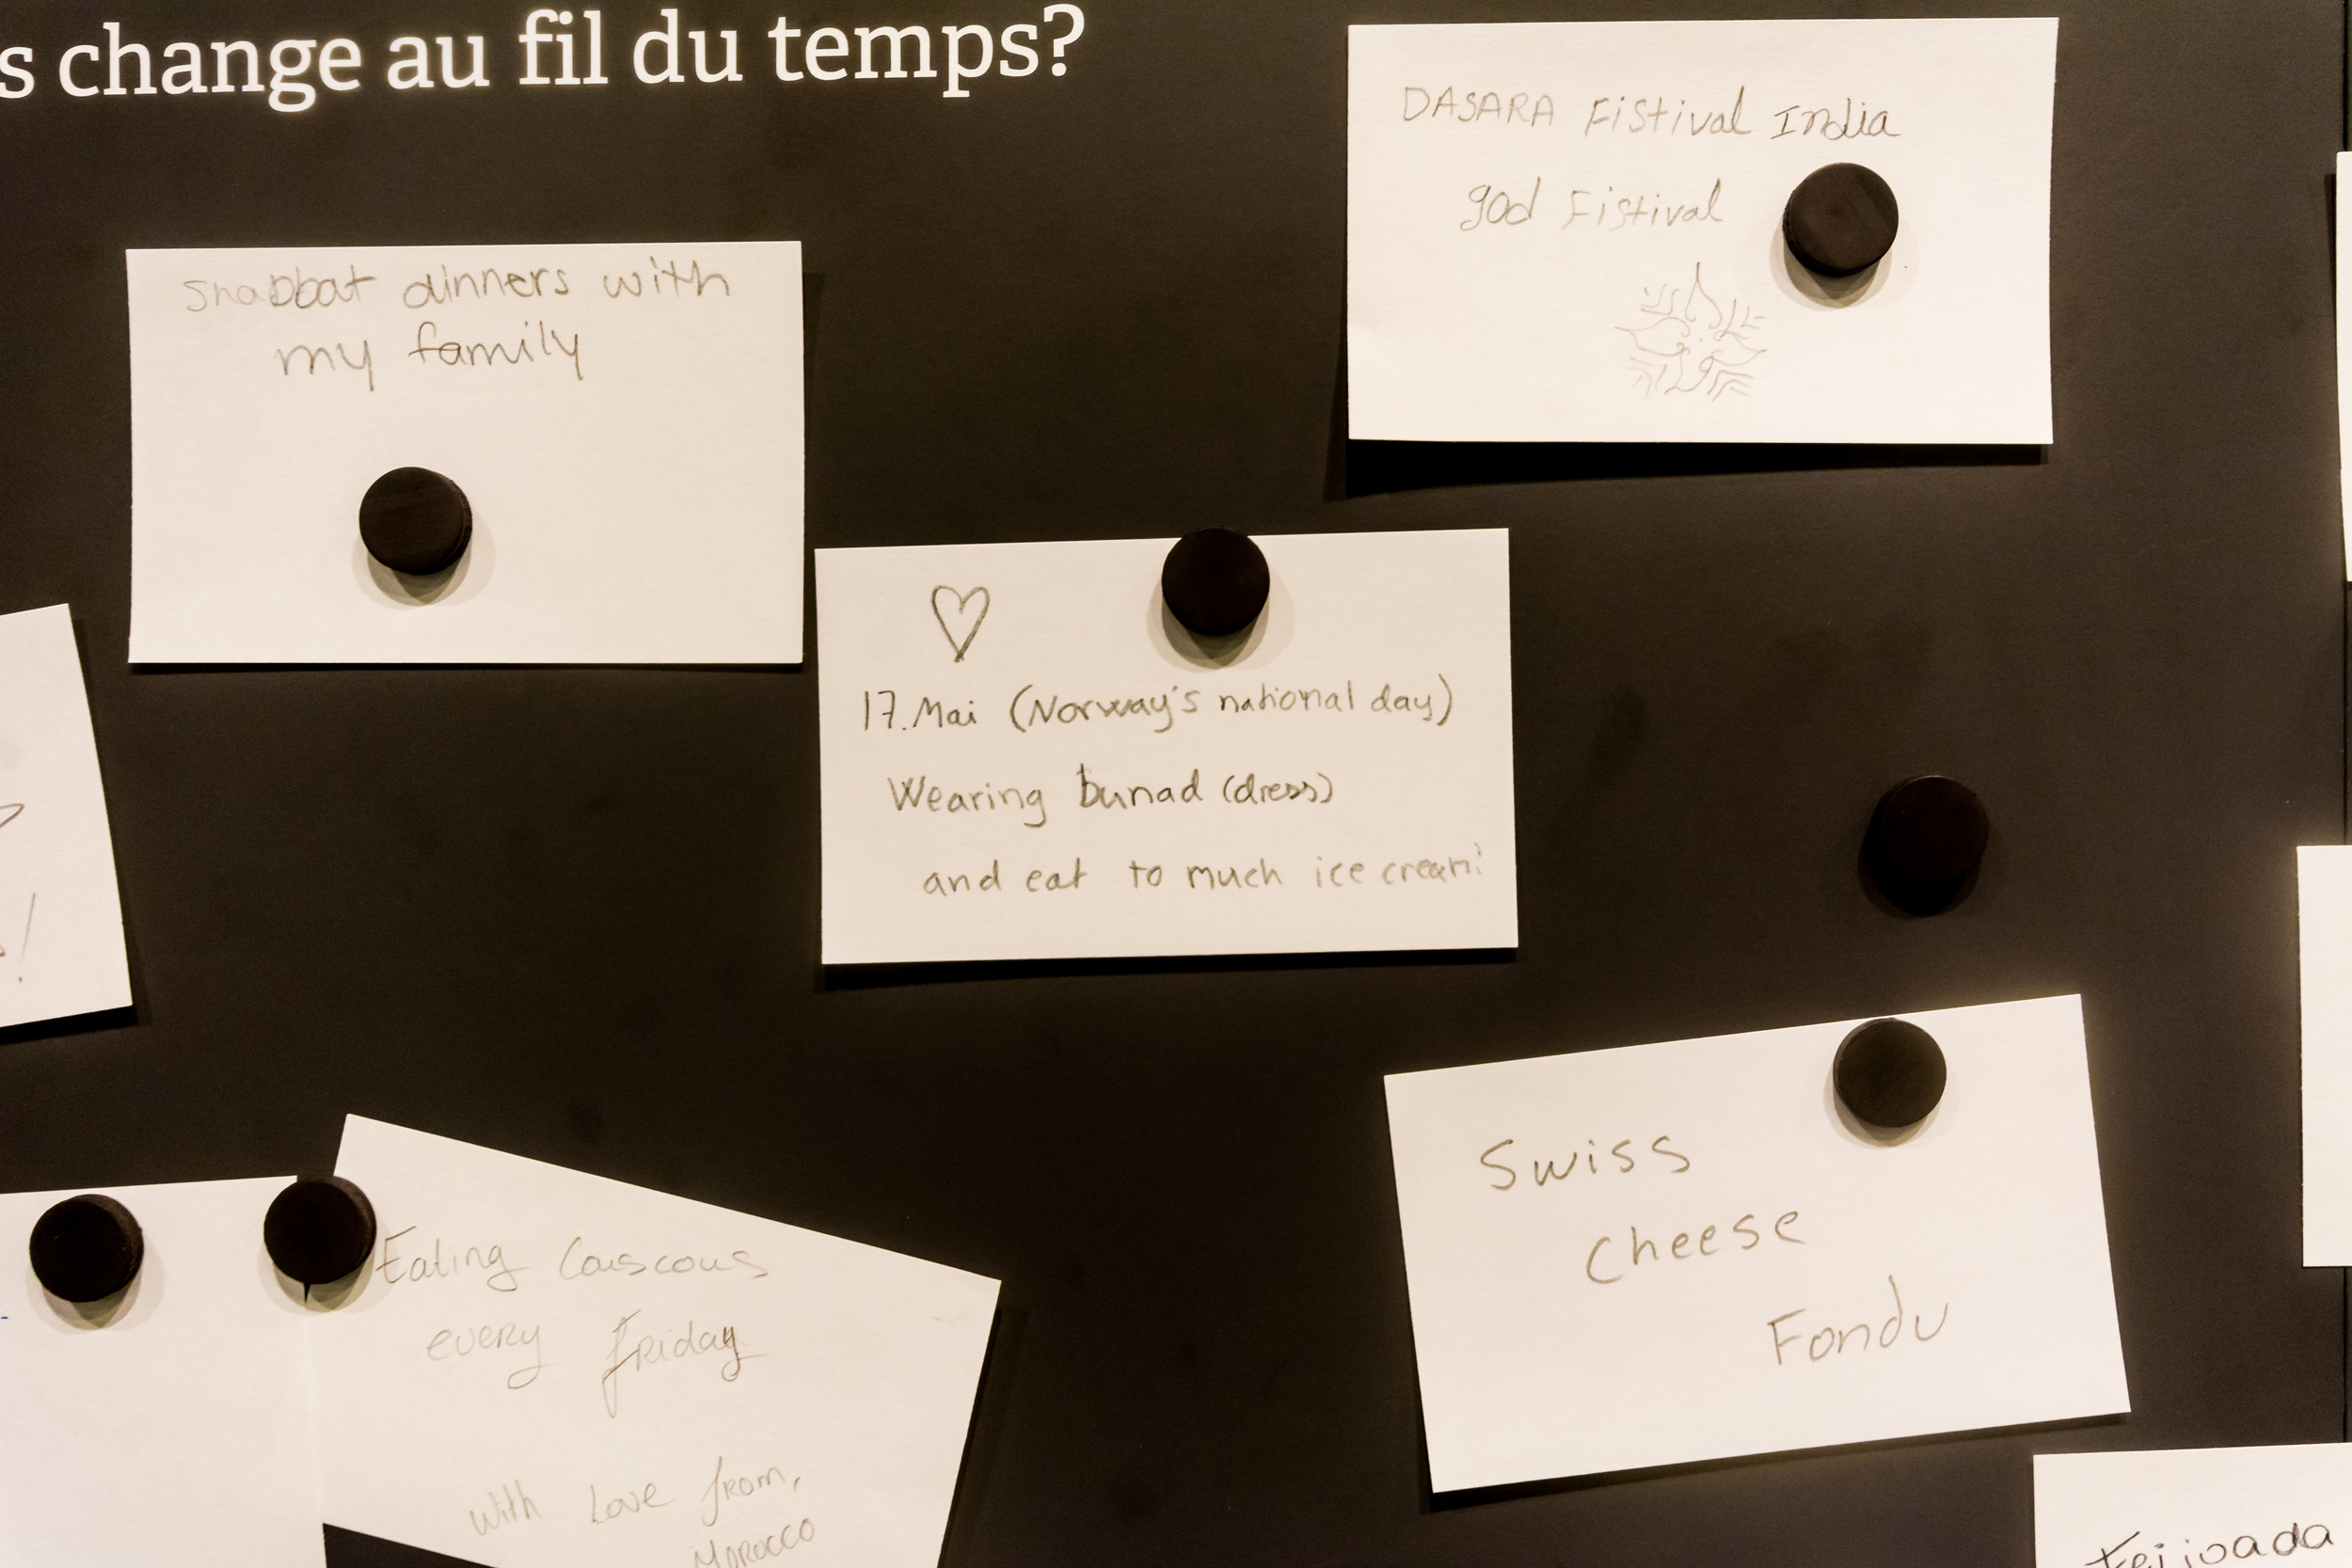 s change au fil du temps?
DASARA Fistival India
god Fistival
Shabbat dinners with
my family
17.Mai (Norway's national day)
Wearing bunad (dress)
and eat to much ice cream!
Swiss
Cheese
Fondu
Eating Couscous
every friday
With Love from,
Morocco
Feijoada